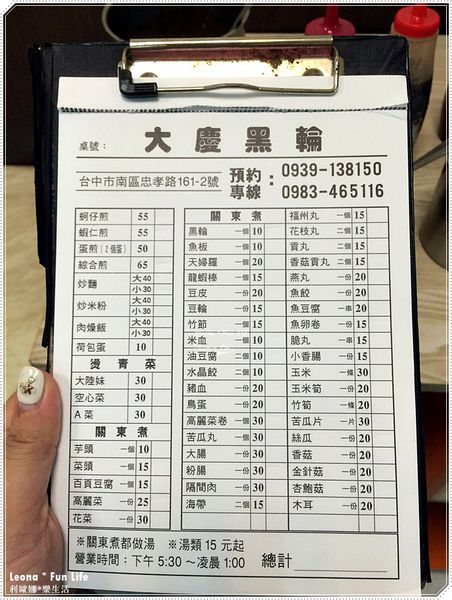 桌號：
大慶黑輪
台中市南區忠孝路161-2號
預約專線：
0939-138150
0983-465116
蚵仔煎 55
蝦仁煎 55
蛋煎(2個蛋) 50
綜合煎 65
炒麵 大40 小30
炒米粉 大40 小30
肉燥飯 大40 小30
荷包蛋 10
燙青菜
大陸妹 30
空心菜 30
A菜 30
關東煮
芋頭 一個 10
菜頭 一個 15
百頁豆腐 一個 15
高麗菜 一份 25
花菜 一份 30
關東煮
黑輪 一個 10
魚板 一個 10
天婦羅 一個 20
龍蝦棒 一個 15
豆皮 一份 20
豆輪 一份 15
竹節 一個 15
米血 一個 10
油豆腐 二個 10
水晶餃 二個 10
豬血 一份 20
鳥蛋 一份 20
高麗菜卷 一個 30
苦瓜丸 一個 30
大腸 一份 30
粉腸 一份 30
隔間肉 一份 30
海帶 二個 15
福州丸 一個 15
花枝丸 二個 15
貢丸 二個 15
香菇貢丸 二個 15
燕丸 一份 20
魚餃 一份 20
魚豆腐 一串 20
魚卵卷 一份 15
脆丸 一串 15
小香腸 一份 15
玉米 一條 30
玉米筍 一份 20
竹筍 一條 20
苦瓜片 一片 30
絲瓜 一份 20
香菇 一份 20
金針菇 一份 20
杏鮑菇 一份 20
木耳 一份 20
※關東煮都做湯 ※湯類15元起
營業時間：下午5:30～凌晨1:00 總計
Leona * Fun Life
利歐娜*樂生活